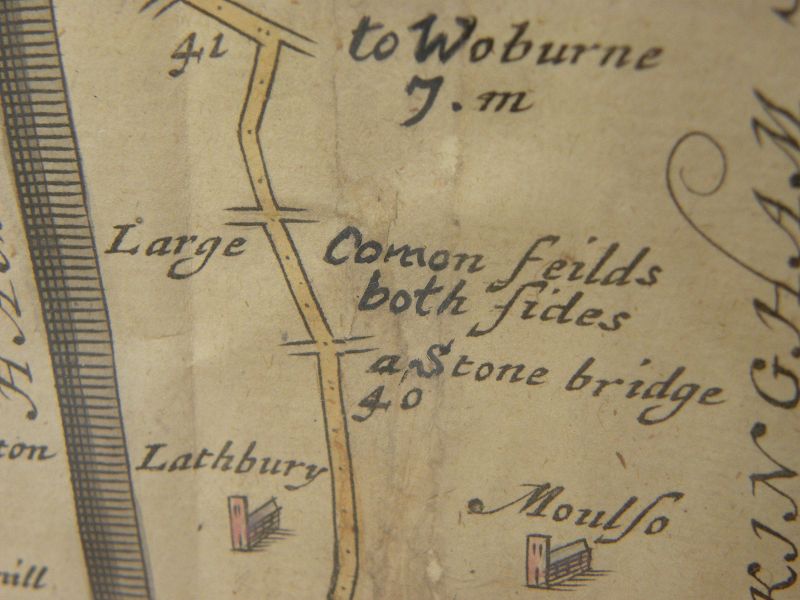 41
to Woburne
7. m
Large
Comon feilds
both ſides
a Stone bridge
40
Lathbury
Moulſo
KINGHAM
ton
mill